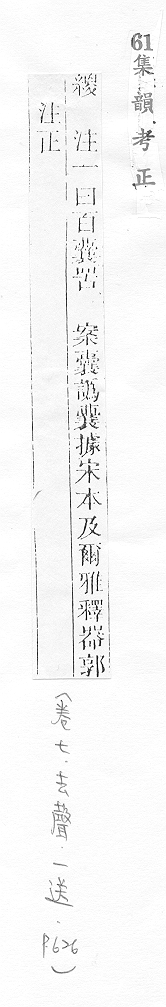 61集韻考正
緵　注一曰百囊罟　案囊譌囊據宋本及爾雅釋器郭
注正
(卷七．去聲．一送．P626)